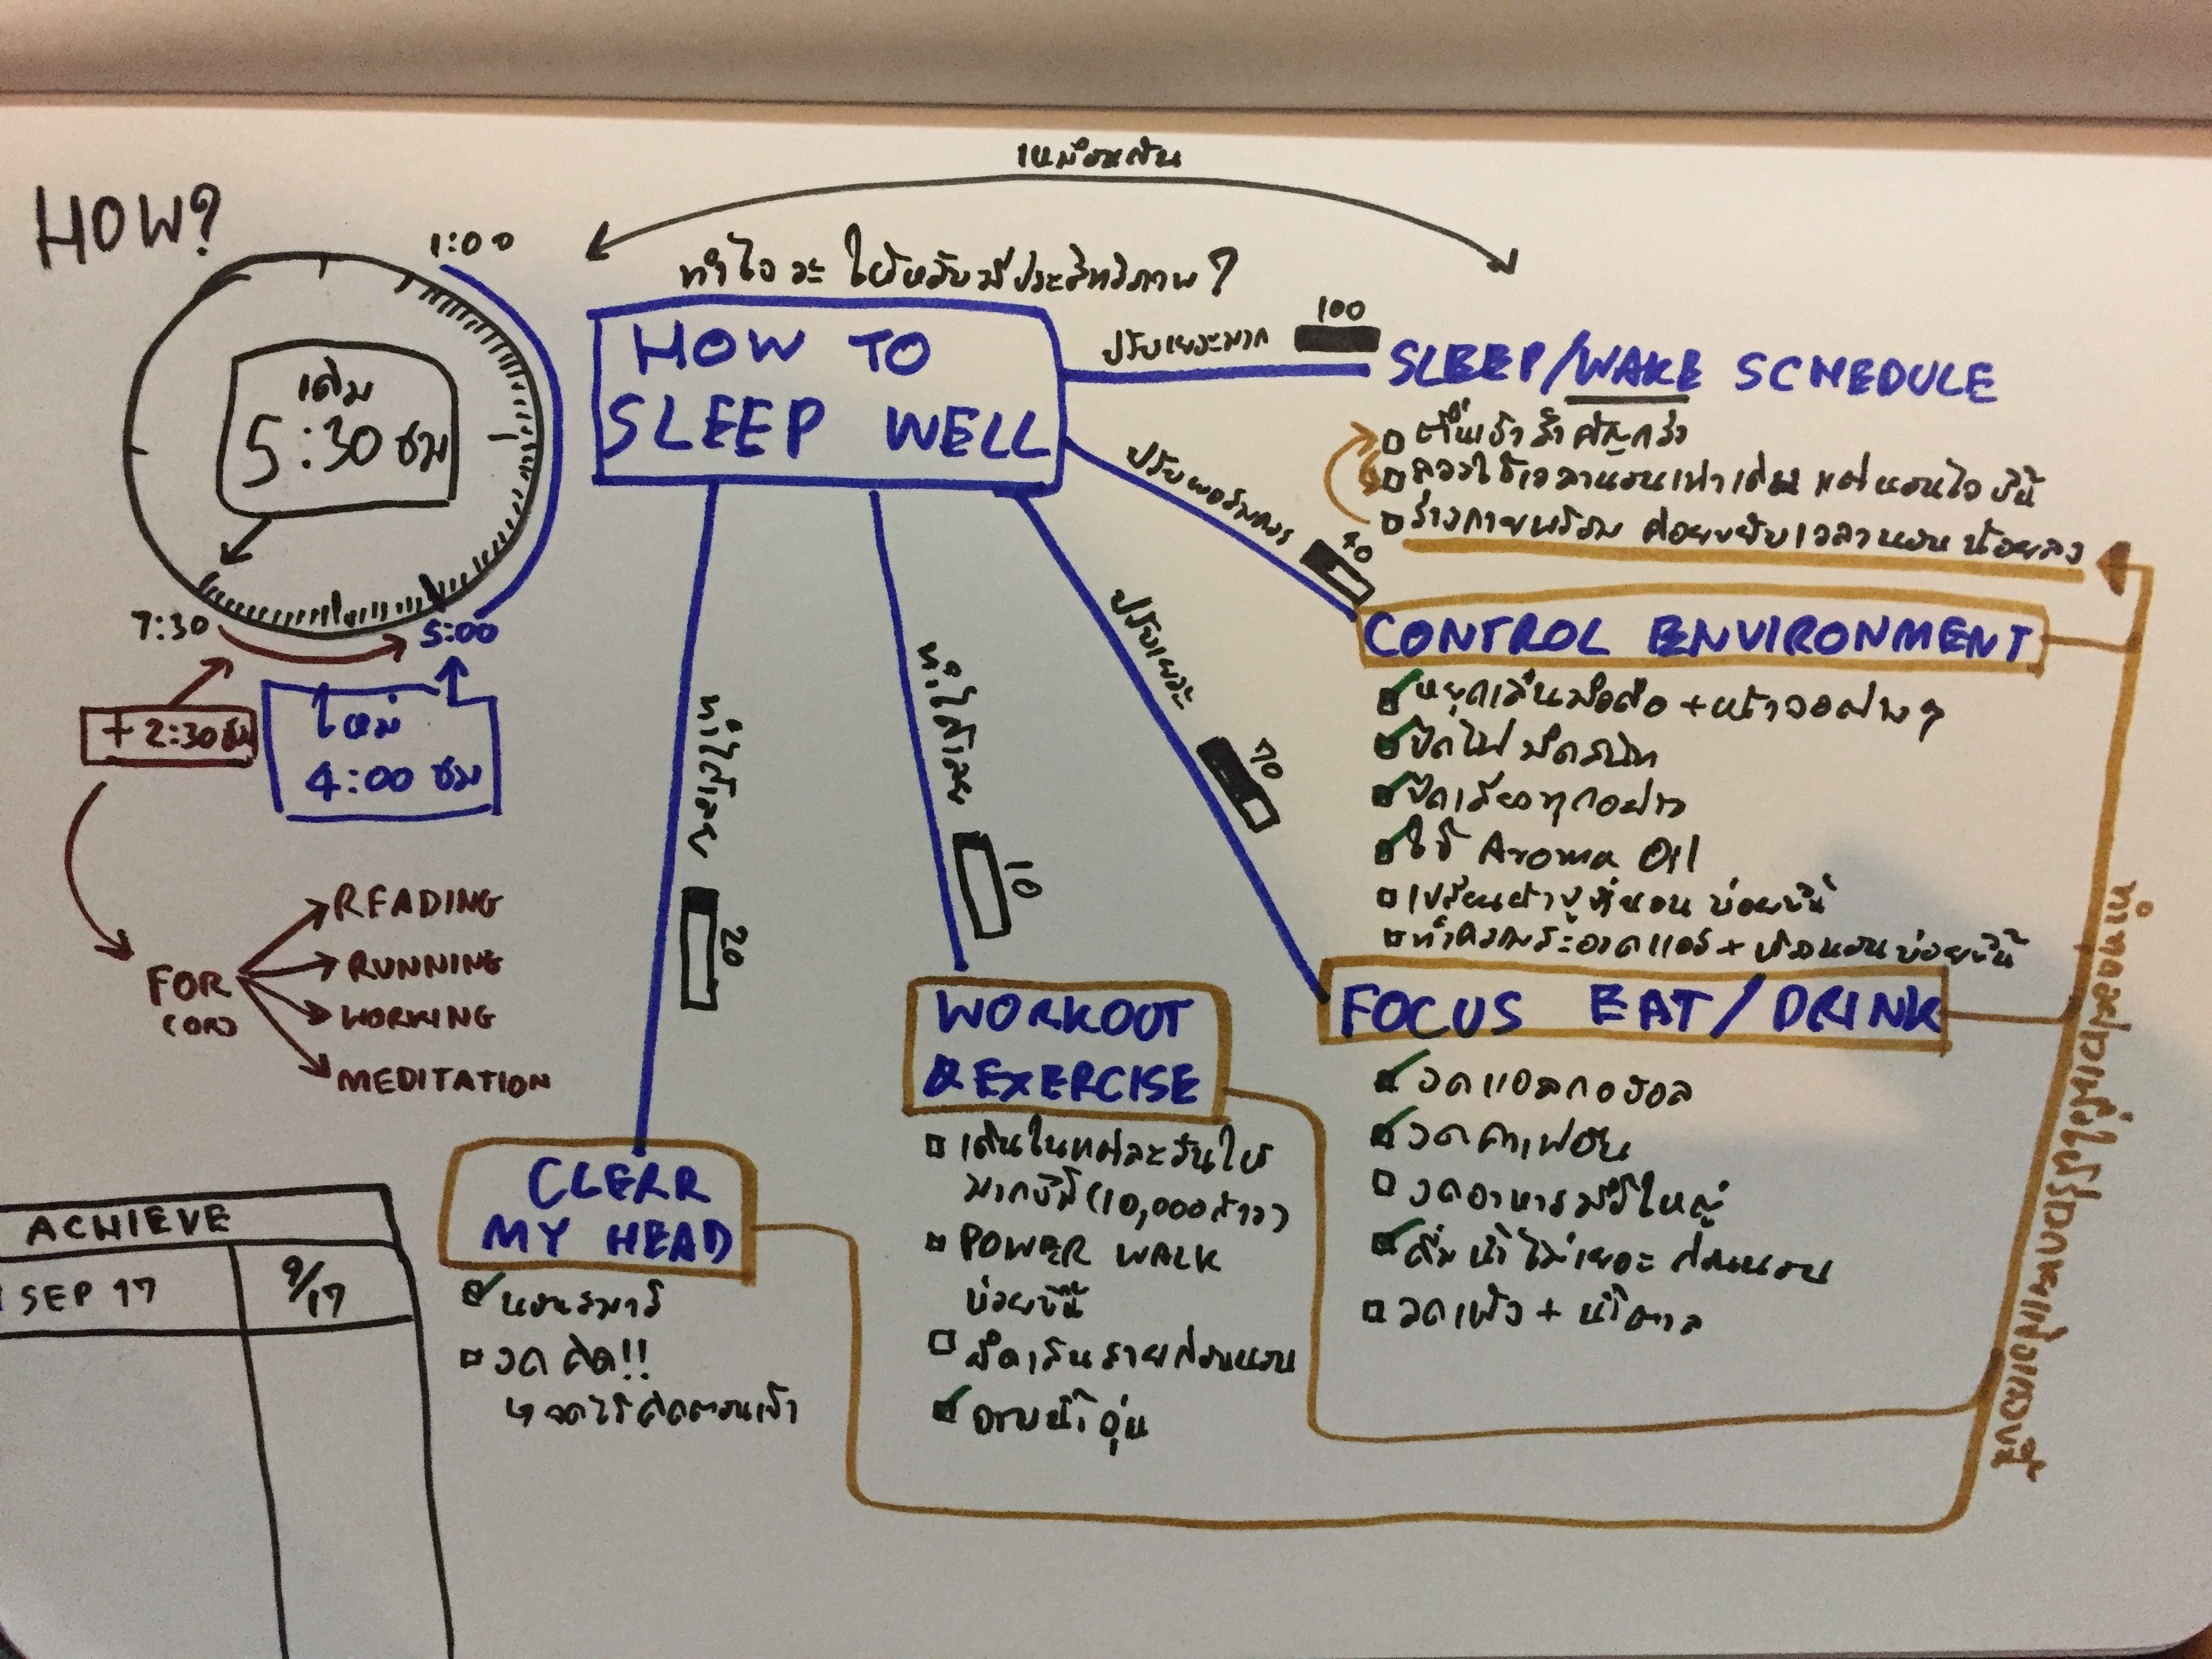 HOW?
เหมือนกัน
1:00
ทำไงจะ ให้หลับมีประสิทธิภาพ?
HOW TO
SLEEP WELL
เดิม
5:30 ชม
7:30
5:00
+2:30 ชม
ใหม่
4:00 ชม
FOR
(OR)
READING
RUNNING
WORKING
MEDITATION
ACHIEVE
SEP 17
9/17
ปรับเยอะมาก
100
SLEEP/WAKE SCHEDULE
ตื่นเช้า
ลองใช้เวลานอนเท่าเดิม แต่นอนไวขึ้น
ร่างกายพร้อม ค่อยขยับเวลานอน น้อยลง
ปรับพอสมควร
40
CONTROL ENVIRONMENT
หยุดเล่นมือถือ + หน้าจอต่างๆ
ปิดไฟ มืดสนิท
ปิดเสียงทุกอย่าง
ใช้ Aroma Oil
เปลี่ยนผ้าปูที่นอน บ่อยขึ้น
ทำความสะอาดแอร์ + บ่อยขึ้น
ปรับเยอะ
70
FOCUS EAT/DRINK
งดแอลกอฮอล
งดคาเฟอีน
งดอาหารมื้อใหญ่
ดื่มน้ำไม่เยอะ ก่อนนอน
ลดแป้ง + น้ำตาล
ทำได้เลย
10
WORKOUT
& EXERCISE
เดินในแต่ละวันให้
มากขึ้น (10,000 ก้าว)
POWER WALK
บ่อยขึ้น
ยืดเส้นสายก่อนนอน
อาบน้ำอุ่น
ทำได้เลย
20
CLERR
MY HEAD
นอนสมาธิ
งด คิด!!
↳ จดไว้ คิดตอนเช้า